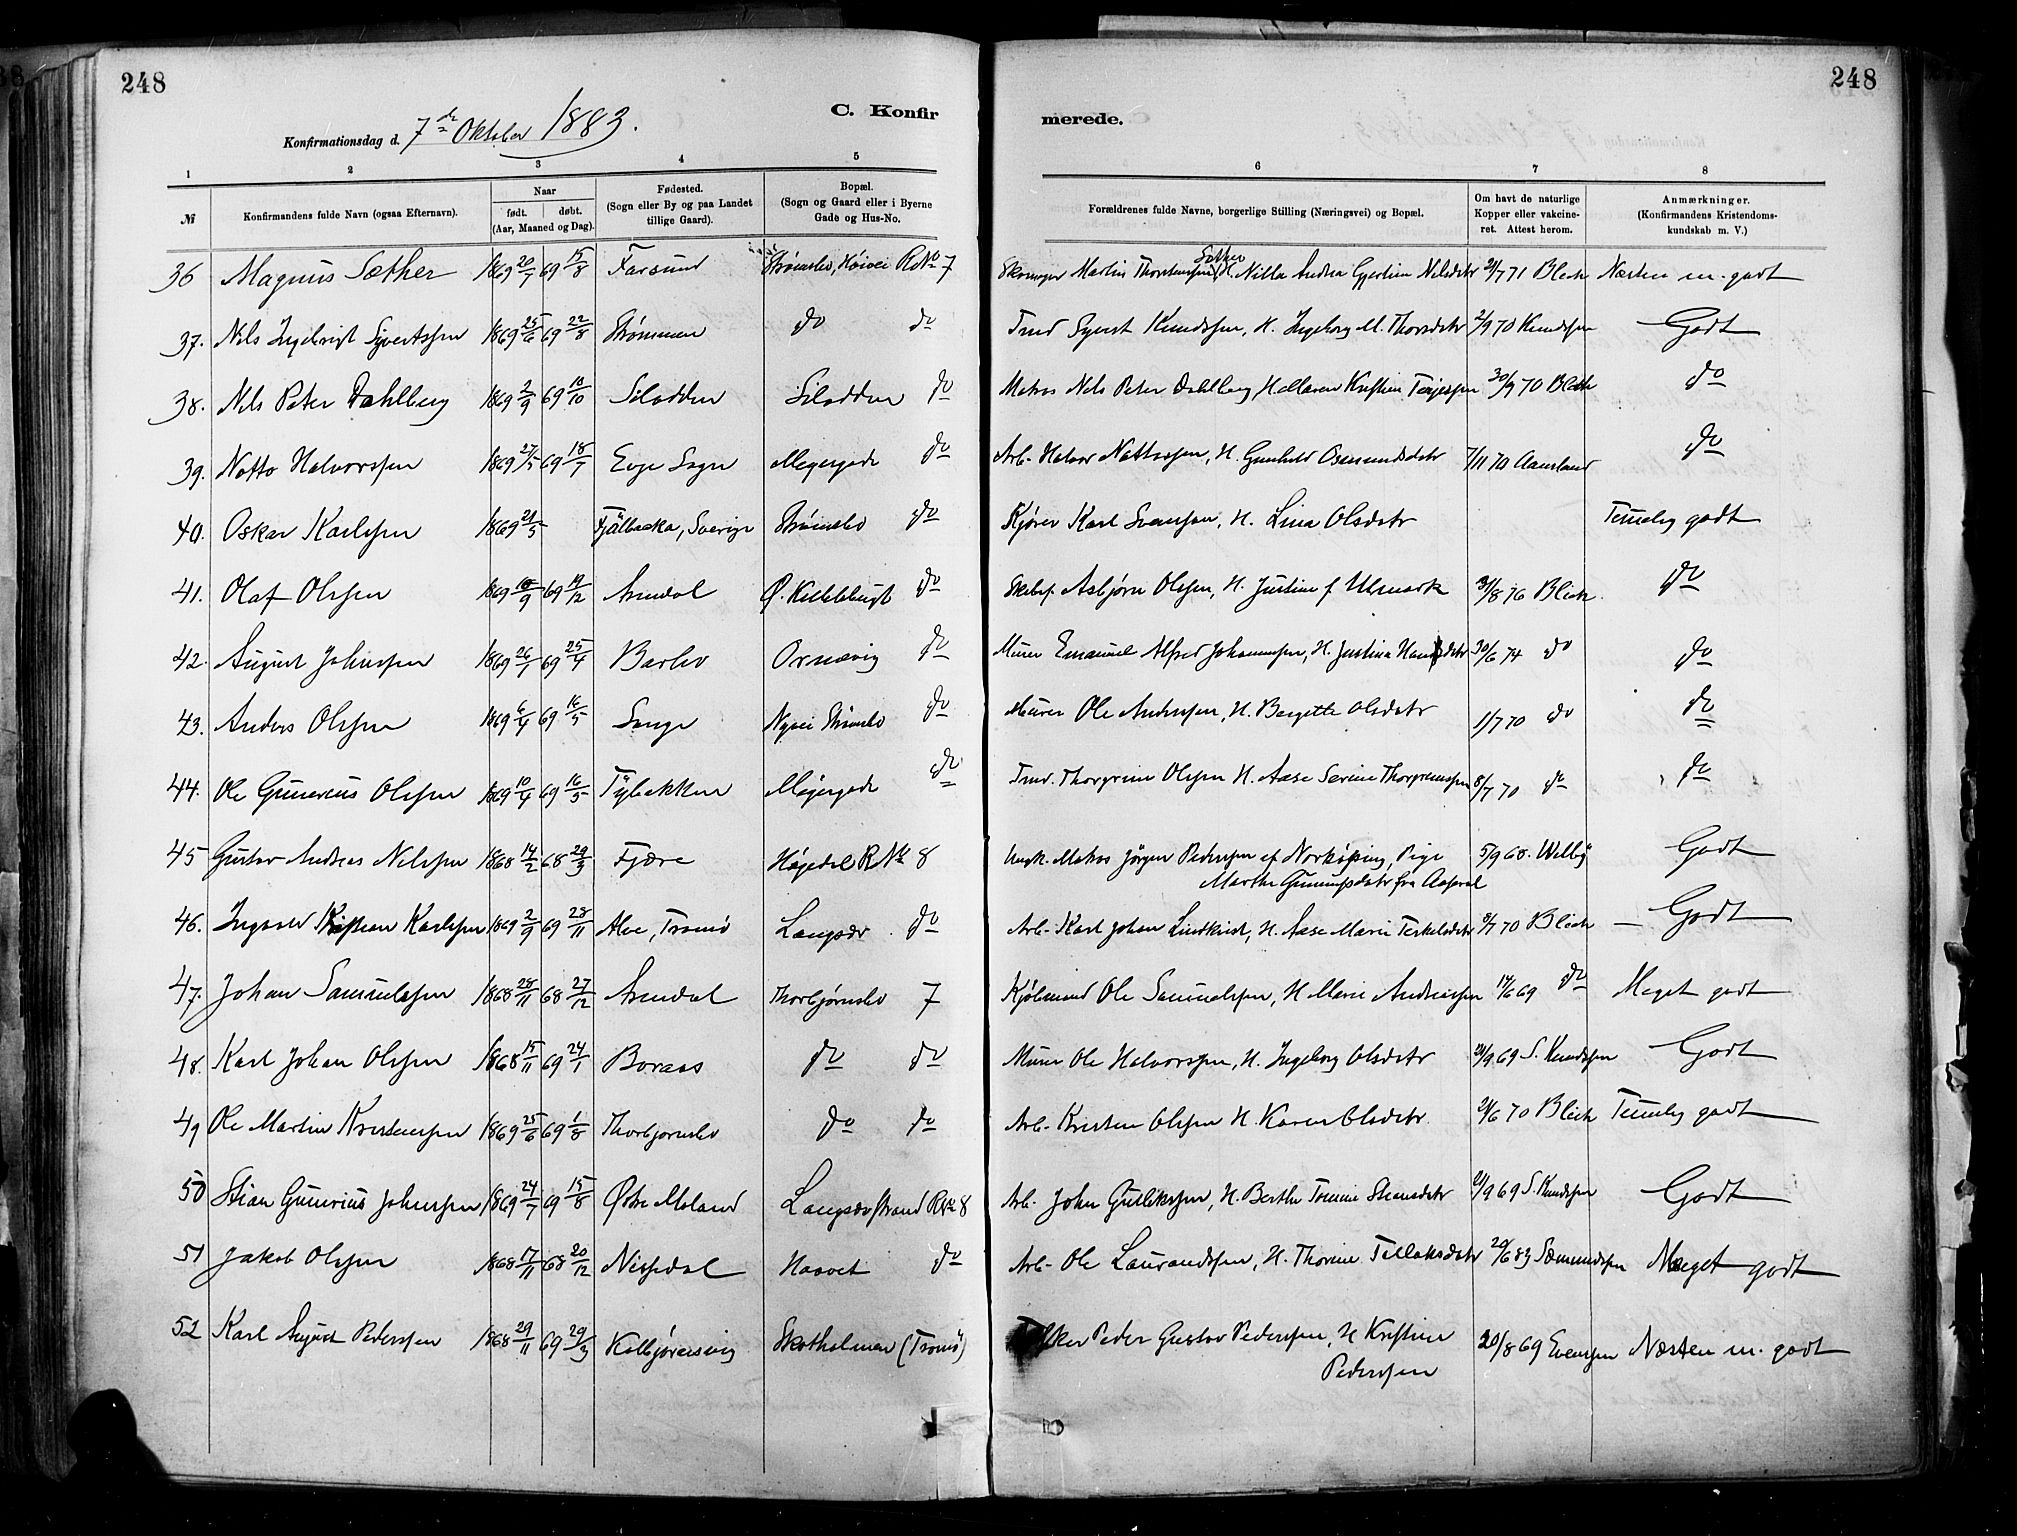 248
248
C. Konfir
merede.
Konfirmationsdag d. 7de Oktober 1883.
1 2 3 4 5 6 7 8
№ Konfirmandens fulde Navn (ogsaa Efternavn). Naar født. døbt. (Aar, Maaned og Dag). Fødested. (Sogn eller By og paa Landet tillige Gaard). Bopæl. (Sogn og Gaard eller i Byerne Gade og Hus-No. Forældrenes fulde Navne, borgerlige Stilling (Næringsvei) og Bopæl. Om havt de naturlige Kopper eller vakcineret. Attest herom. Anmærkninger. (Konfirmandens Kristendomskundskab m. V.)
36 Magnus Sæther 1869 20/7 69 15/8 Farsund Strømsbo, Høivei RNo 7 Martin Thorstensen Sæther, H. Nilla Andrea Gjertine Nilsdatr 21/7 71 Blech Næsten m. godt
37. Nils Ingebrigt Syvertssen 1869 25/6 69 22/8 Strømmen do do Tmd Syvert Knudssen, H. Ingeborg M. Thorsdatr 2/9 70 Knudssen Godt
38. Nils Peter Dahlberg 1869 2/9 69 10/10 Silodden Silodden do Matros Nils Peter Dahlberg, H. Maren Kristine Terjessen 30/9 70 Blech do
39. Notto Halvorssen 1869 27/5 69 18/7 Evje Sogn Megergade do Arb. Halvor Nottossen, H. Gunhild Osmundsdatr 7/11 70 Aanesland do
40. Oskar Karlssen 1869 21/5 Fjälbacka, Sverige Strømsbo do Kjører Karl Svensson, H. Lina Olsdatr Temelig godt
41. Olaf Olssen 1869 10/9 69 19/12 Arendal Ø. Kittelsbugt do Skibsf. Asbjørn Olssen, H. Justine f Ulsmark 31/8 76 Blech. do
42. August Johnssen 1869 26/1 69 25/4 Barbo Ornævig do Murer Emanuel Alfred Johannessen, H. Justina Hansdatr 30/6 74 do do
43. Anders Olssen 1869 6/4 69 16/5 Songe Nyvei Strømsbo do Murer Ole Anderssen, H. Bergitte Olsdatr 1/7 70 do do
44. Ole Gunerius Olssen 1869 10/4 69 16/5 Tybakken Megergade do Tmd. Thorgrim Olssen H. Aase Serine Thorgrimssen 8/7 70 do do
45 Gustav Andreas Nilssen 1868 14/2 68 29/3 Fjære Høgedal RNo 8 Ungk. Matros Jörgen Pederssen af Norköping, Pige 5/9 68. Welby Godt
Marthe Gunuusdatr fra Aaseral
46. Ingvald Kristian Karlssen 1869 2/9 69 28/11 Alve, Tromø Langsæv do Arb. Karl Johan Lindkvist, H. Aase Marie Terkelsdatr 8/7 70 Blech Godt
47. Johan Samuelssen 1868 28/11 68 27/12 Arendal Thorbjørnsbo 7 Kjøbmand Ole Samuelssen, H Marie Andreassen 14/6 69 do Meget godt
48. Karl Johan Olssen 1868 15/11 69 24/1 Boraas do do Murer Ole Halvorssen, H. Ingeborg Olsdatr 21/9 69 S. Knudssen Godt
49 Ole Martin Kristenssen 1869 25/6 69 1/8 Thorbjørnsbo do do Arb. Kristen Olssen H. Karen Olsdatr. 21/6 70 Blech Temelig godt
50 Stian Gunerius Johnssen 1869 24/7 69 15/8 Østre Moland Langsævstrand RNo 8 Arb. John Gulliksen, H. Berthe Tomine Steansdatr 21/9 69 S. Knudssen Godt
51 Jakob Olssen 1868 17/11 68 20/12 Nissedal Haavet do Arb. Ole Laurandssen, H. Thorine Tellaksdatr 20/6 83 Sæmundssen Meget godt
52 Karl August Pederssen 1868 29/11 69 29/3 Kolbjørnsvig Skotholmen (Tromö) Peder Gustav Pederssen, H Kristine 20/8 69 Evenssen Næsten m. godt
Pederssen